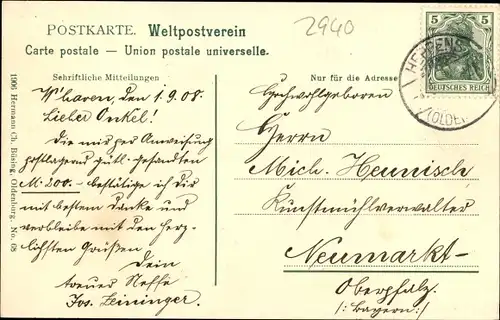 2940
POSTKARTE. Weltpostverein
Carte postale — Union postale universelle.
5 5
DEUTSCHES REICH
HEPPENS
(OLDE
Schriftliche Mitteilungen
Nur für die Adresse
W'haven, den 1.9.08.
Lieber Onkel!
Die mir per Anweisung
postlagernd gütl. gesandten
M. 200.- bestätige ich Dir
mit bestem Danke und
verbleibe mit den herz-
lichsten Grüßen
Dein
treuer Neffe
Jos. Leininger.
Hochwohlgeboren
Herrn
Mich. Heunisch
Kunstmühlverwalter
Neumarkt-
Oberpfalz.
/: Bayern :/
1906 Hermann Ch. Büsing, Oldenburg, No. 68